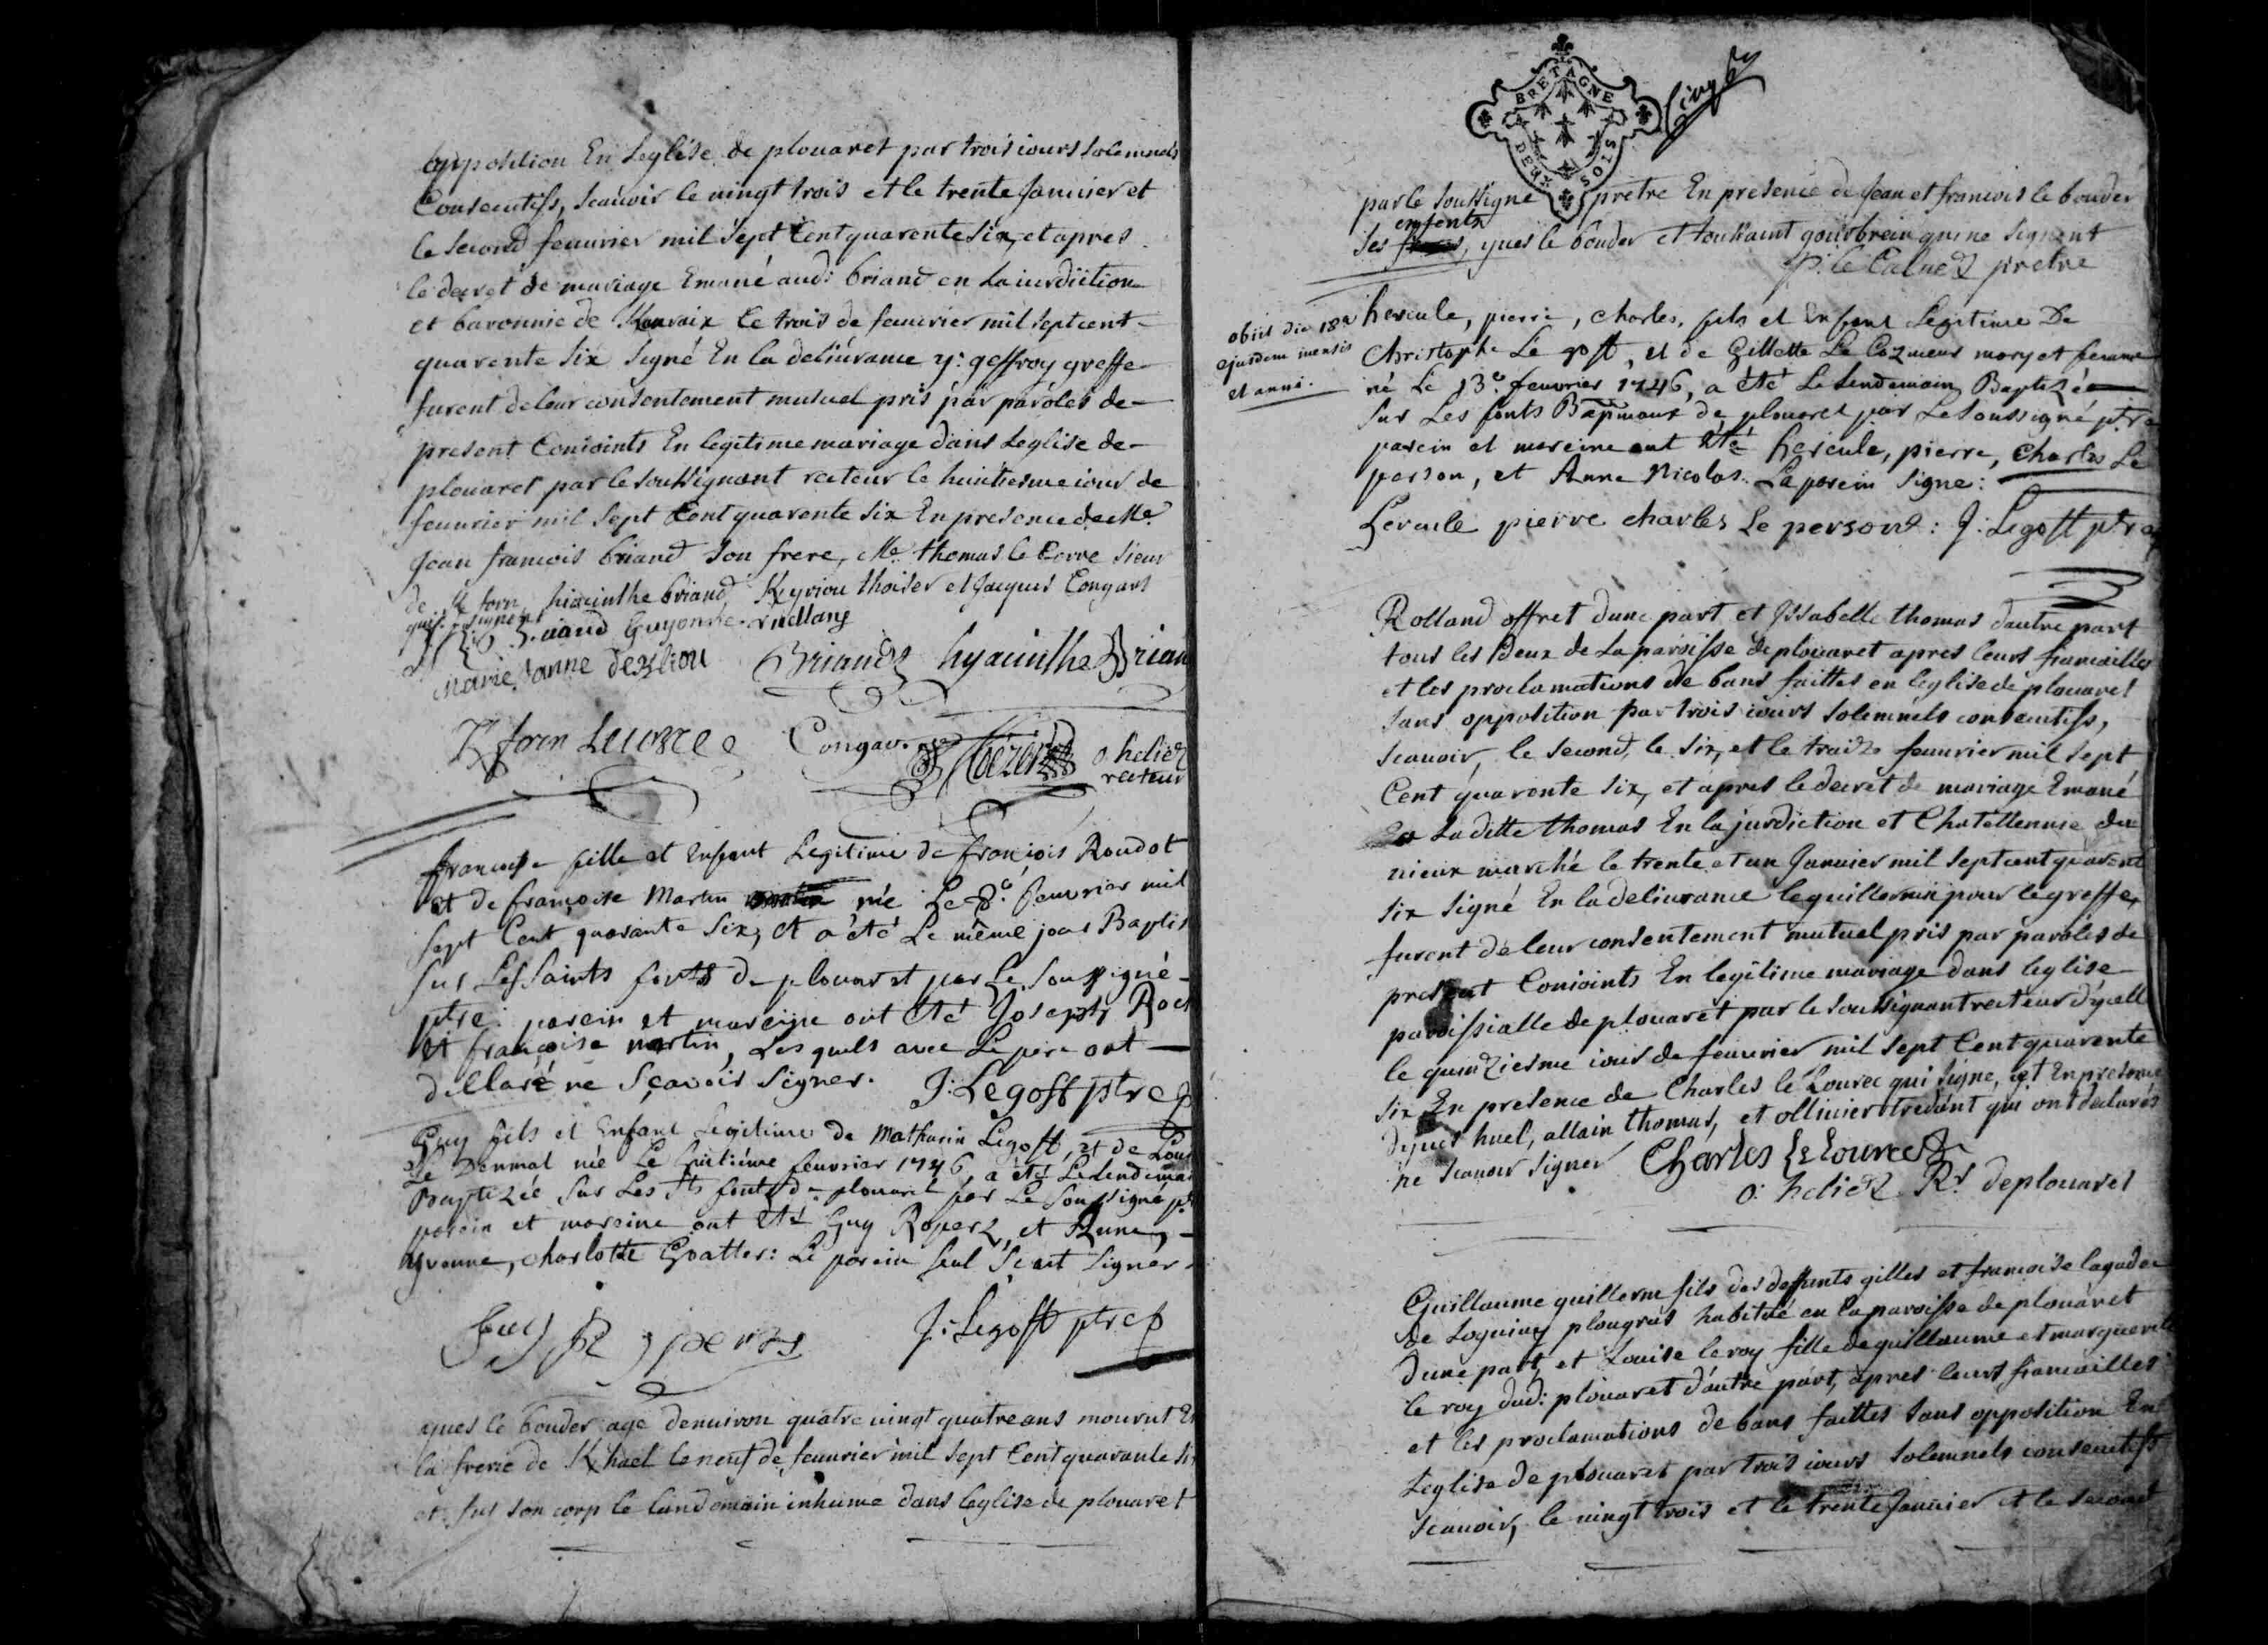 opposition En Leglise de plouaret par trois iours solemnels
Consecutifs, scauoir le vingt trois et le trente Januier et
le second feuurier mil sept Cent quarente six, et apres
le decret de mariage Emané aud: briand en La iurdiction
et baronnie de le trois de feuurier mil sept cent
quarente six signé En la deliurance y: geffroy greffe
furent de leur consentement mutuel pris par paroles de
present Conioints En legitime mariage dans Leglise de
plouaret par le soussignant recteur le huictiesme iour de
feuurier mil sept Cent quarente six En presence de Me
Jean francois briand son frere, Me thomas le Corre sieur
de forn, hiacinthe briand et Jacques Congar
qui signent
Briand Guyonne
marie Janne
Briand hyacinthe Brian
forn Lecorre Congar
o helies
recteur
francoise fille et Enfant Legitime de françois Roudot
et de françoise Martin née Le 8e feuvrier mil
sept Cent quarante Six, et a été Le même jour Baptis
sur Les Saints fonts de plouaret par Le Soussigné
ptre: parein et mareine ont été Joseph Rou
et françoise martin, Lesquels avec Le pere ont
déclaré ne sçavoir signer. J: Legoff ptre
Guy fils et Enfant Legitime de Mathurin Legoff, et de Lou
Le Denmat née Le huitiéme feuvrier 1746, a été Le lendemai
Baptizée Sur Les Sts fonts de plouaret par Le Soussigné p
parein et mareine ont été Guy Roperz, et Anne,
yvonne, charlotte Goatter: Le parein seul scait signer.
Guy Roperz J: Legoff ptre
yues le bouder age denuiron quatre vingt quatre ans mourut E
la frerie de Khael le neuf de feuurier mil sept Cent quarante si
et fut son corp le landemain inhumé dans leglise de plouaret
BRETAGNE
DEUX SOLS
par le soussigne pretre En presence de Jean et francois le bouder
enfents
ses, yues le bouder et toussaint gourbrein qui ne signent
p: le Calvez pretre
obiit die 18a
ejusdem mensis
et anni.
hercule, pierre, charles, fils et Enfent Legitime De
Christophe Le goff, et de Gillette Le Cozmeur mary et femme
né Le 13e feuvrier 1746, a été Le Lendemain Baptizé
sur Les fonts Bapmaux de plouaret par Le soussigné ptre
parein et mareine ont été hercule, pierre, Charles Le
person, et Anne Nicolas. Le parein signe:
hercule pierre charles Le person: J: Legoff ptre
Rolland offret dune part et Issabelle thomas dautre part
tous les deux de la paroisse de plouaret apres leurs fiancailles
et les proclamations de bans faittes en leglise de plouaret
sans opposition par trois iours solemnels consecutifs,
scauoir, le second, le six, et le traize feuurier mil sept
Cent quarente six, et apres le decret de mariage Emané
Ladite thomas En la jurdiction et Chatellennie du
vieux marché le trente et un Januier mil sept cent quarent
six signé En la deliurance leguillermic pour le greffe,
furent de leur consentement mutuel pris par paroles de
present Conioints En legitime mariage dans leglise
paroissialle de plouaret par le soussignant recteur dycell
le quinziesme iour de feuurier mil sept Cent quarente
six En presence de Charles le Lourec qui signe, et En presence
dyues huel, allain thomas, et ollivier tredant qui ont declarés
ne scauoir signer Charles Le Lourec
o: helies Rr deplouaret
Guillaume guillerm fils des deffunts gilles et francoise lagadec
de Loguiuy plougras habitué en la paroisse de plouaret
dune part, et Louise le roy fille de guillaume et marguerite
le roy dud: plouaret d'autre part, apres leurs fiancailles
et les proclamations de bans faittes sans opposition En
Leglise de plouaret par trois iours solemnels consecutifs
scauoir, le vingt trois et le trente Januier et le second